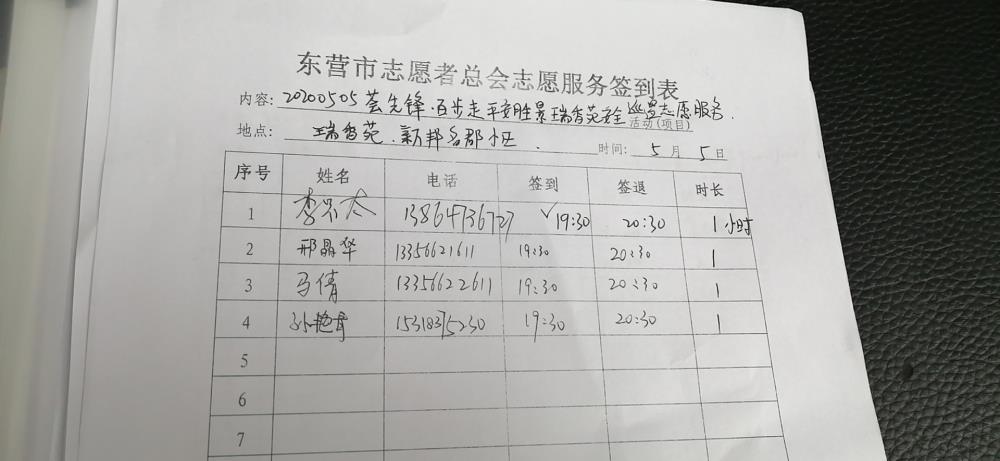 东营市志愿者总会志愿服务签到表
内容: 20200505芸先锋·百步走平安胜景瑞香苑安全巡逻志愿服务. 活动(项目)
地点: 瑞香苑.新邦名郡小区. 时间: 5月5日
序号 姓名 电话 签到 签退 时长
1 李 13864736727 √19:30 20:30 1小时
2 邢晶华 13356621611 19:30 20:30 1
3 马倩 13356622611 19:30 20:30 1
4 孙艳 15318375230 19:30 20:30 1
5
6
7